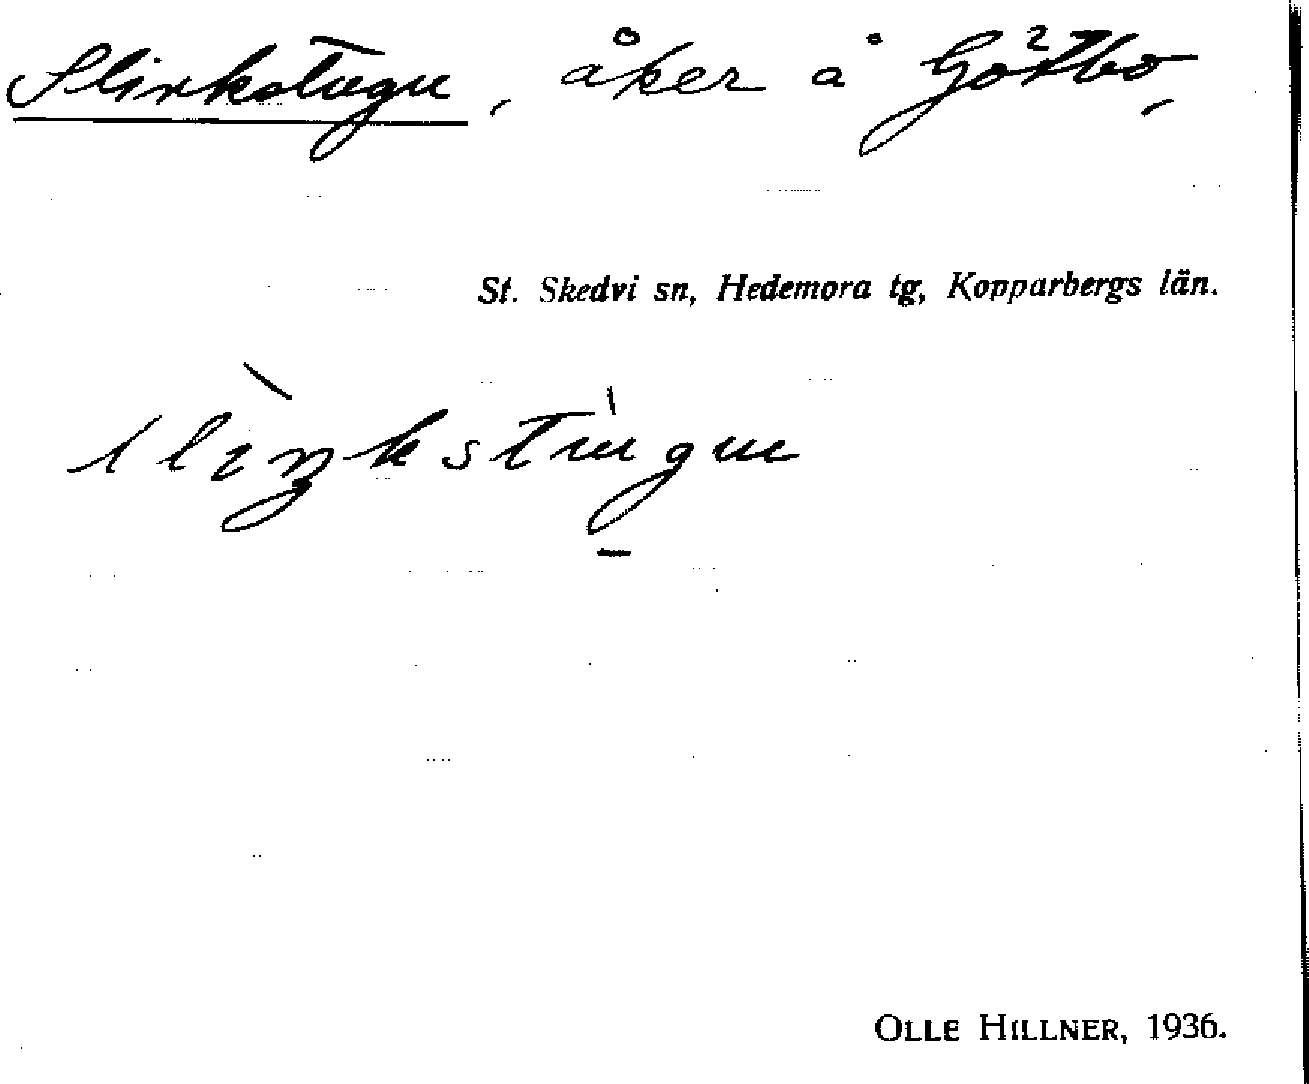 Slinkstugu, åker å Götbo,
St. Skedvi sn, Hedemora tg, Kopparbergs län.
slìŋkstùgu
OLLE HILLNER, 1936.